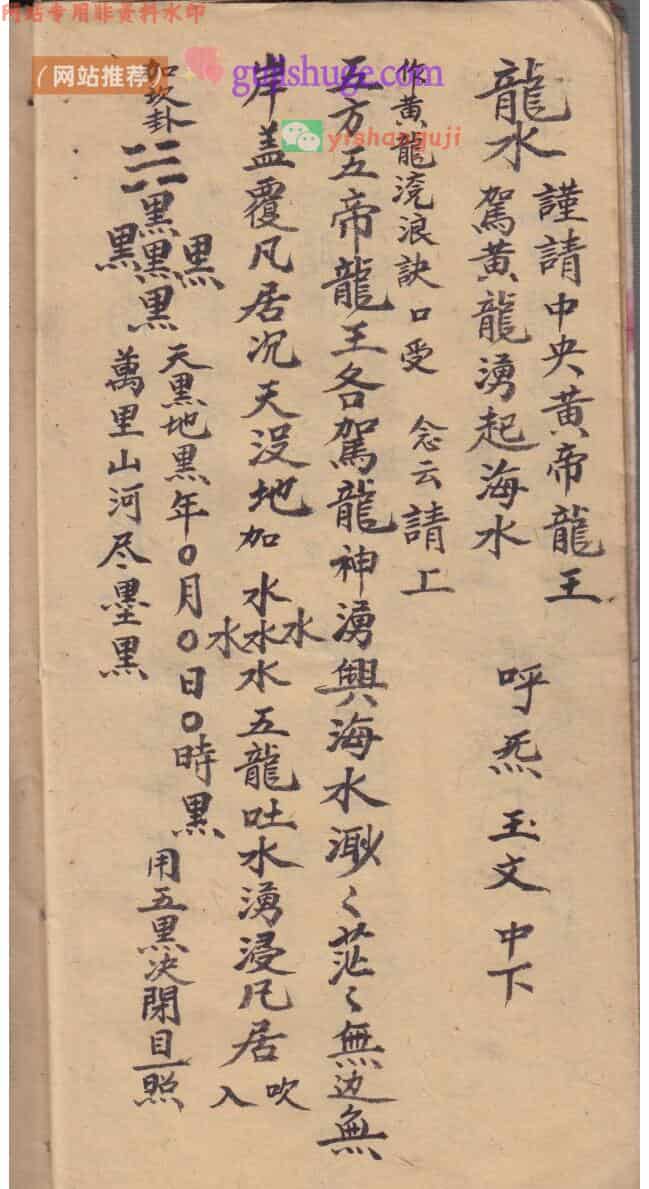 网站专用非资料水印
（网站推荐）
gujishuge.com
yishanguji
龍水
謹請中央黃帝龍王
駕黃龍湧起海水
呼炁玉文中下
作黄龍滾浪訣口受 念云請工
五方五帝龍王各駕龍神湧興海水渺々茫々無边無
岸盖覆凡居沉天沒地加水水水水水五龍吐水湧浸凡居
吹入
如坎卦
黑黑黑黑黑
天黑地黑年〇月〇日〇時黑
萬里山河尽墨黑
用五黑决閉目一照